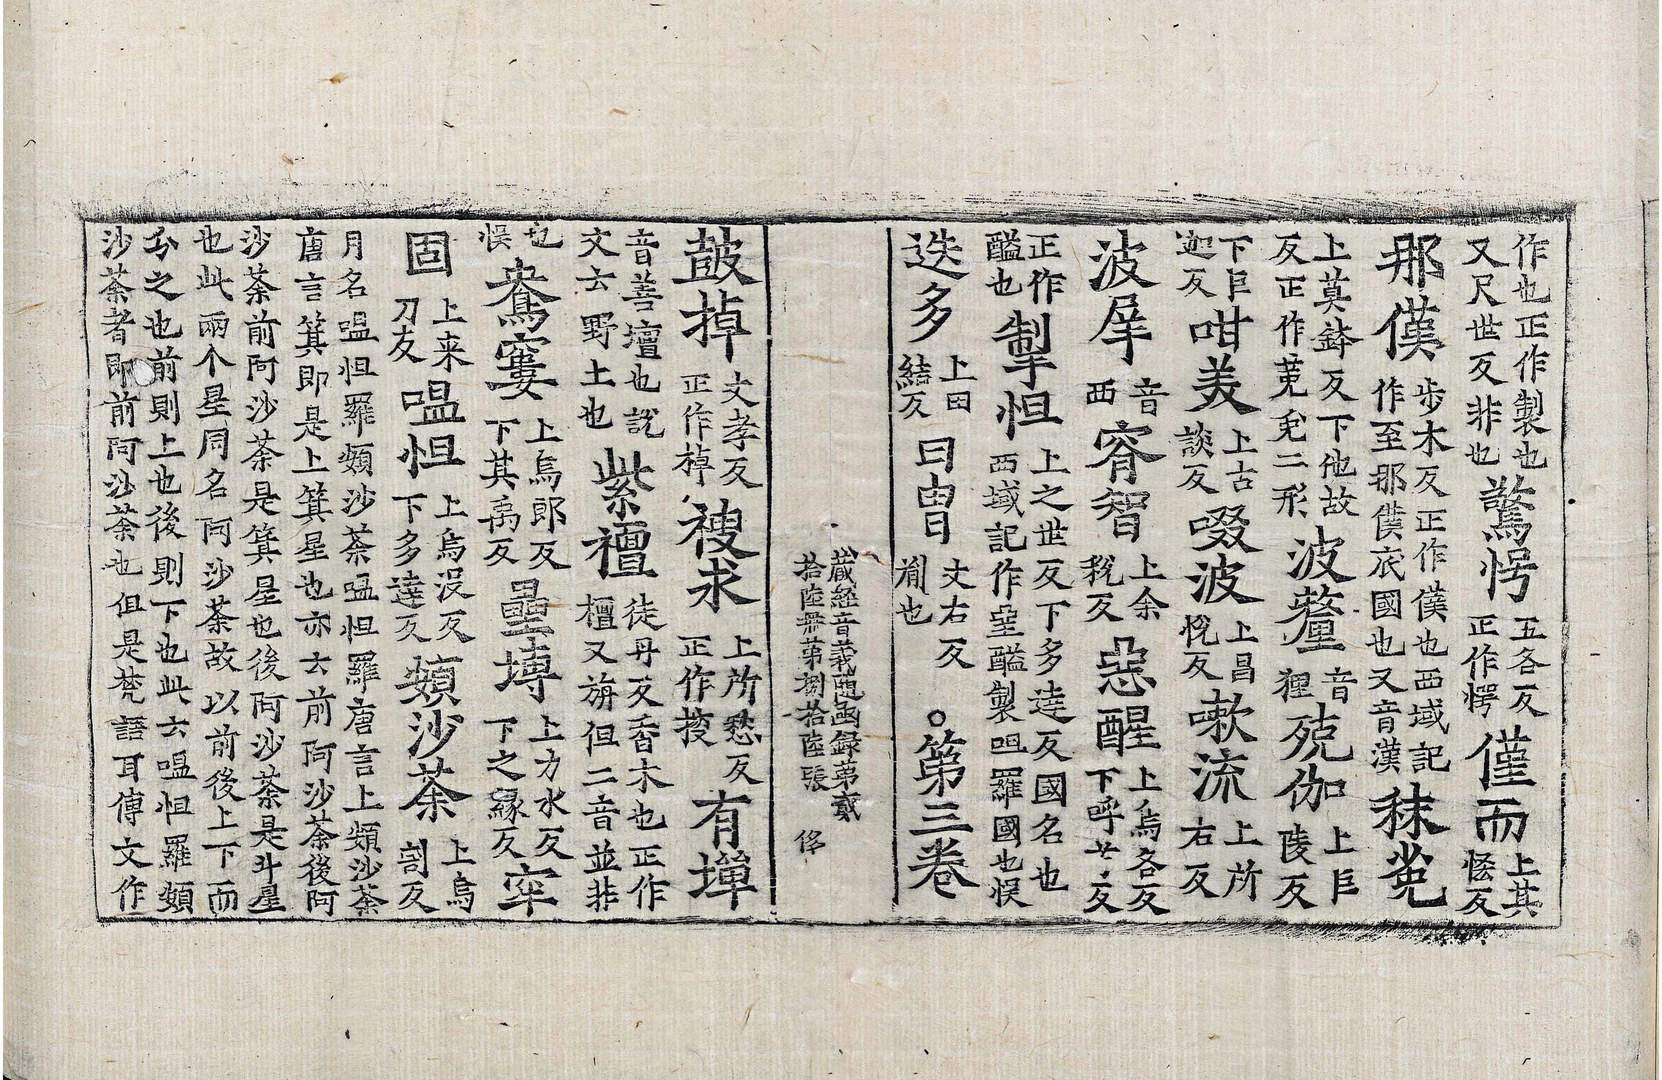 作也正作製也又尺世反非也驚愕五各反正作愕僅而上其恡反
那僕步木反正作僕也西域記作至那僕衣國也又音漢秣菟
上莫鉢反下他故反正作菟兔二形波釐音狸殑伽上巨陵反
下巨迦反咁美上古談反啜波上昌悅反嗽流上所右反
波厗音西睿智上余稅反惡醒上烏各反下呼反
正作醯也掣怛上之世反下多達反國名也西域記作壑醯製呾羅國也悮
迭多上田結反曰胄丈右反也○第三卷
藏經音義隨函録第貳
拾陸冊第捌拾陸張 侈
鼓掉丈孝反正作棹求上所愁反正作搜有墠
音善壇也說文云野土也紫檀徒丹反香木也正作檀又旃但二音並非
也悮鴦窶上烏郎反下其禹反壘塼上力水反下之縁反牢
固上来刀反嗢怛上烏沒反下多達反頞沙荼上烏割反
月名嗢怛羅頞沙荼嗢怛羅唐言上頞沙荼
唐言箕即是上箕星也亦云前阿沙荼後阿
沙荼前阿沙荼是箕星也後阿沙荼是斗星
也此兩个星同名阿沙荼故以前後上下而
分之也前則上也後則下也此云嗢怛羅頞
沙荼者即前阿沙荼也但是梵語耳傳文作